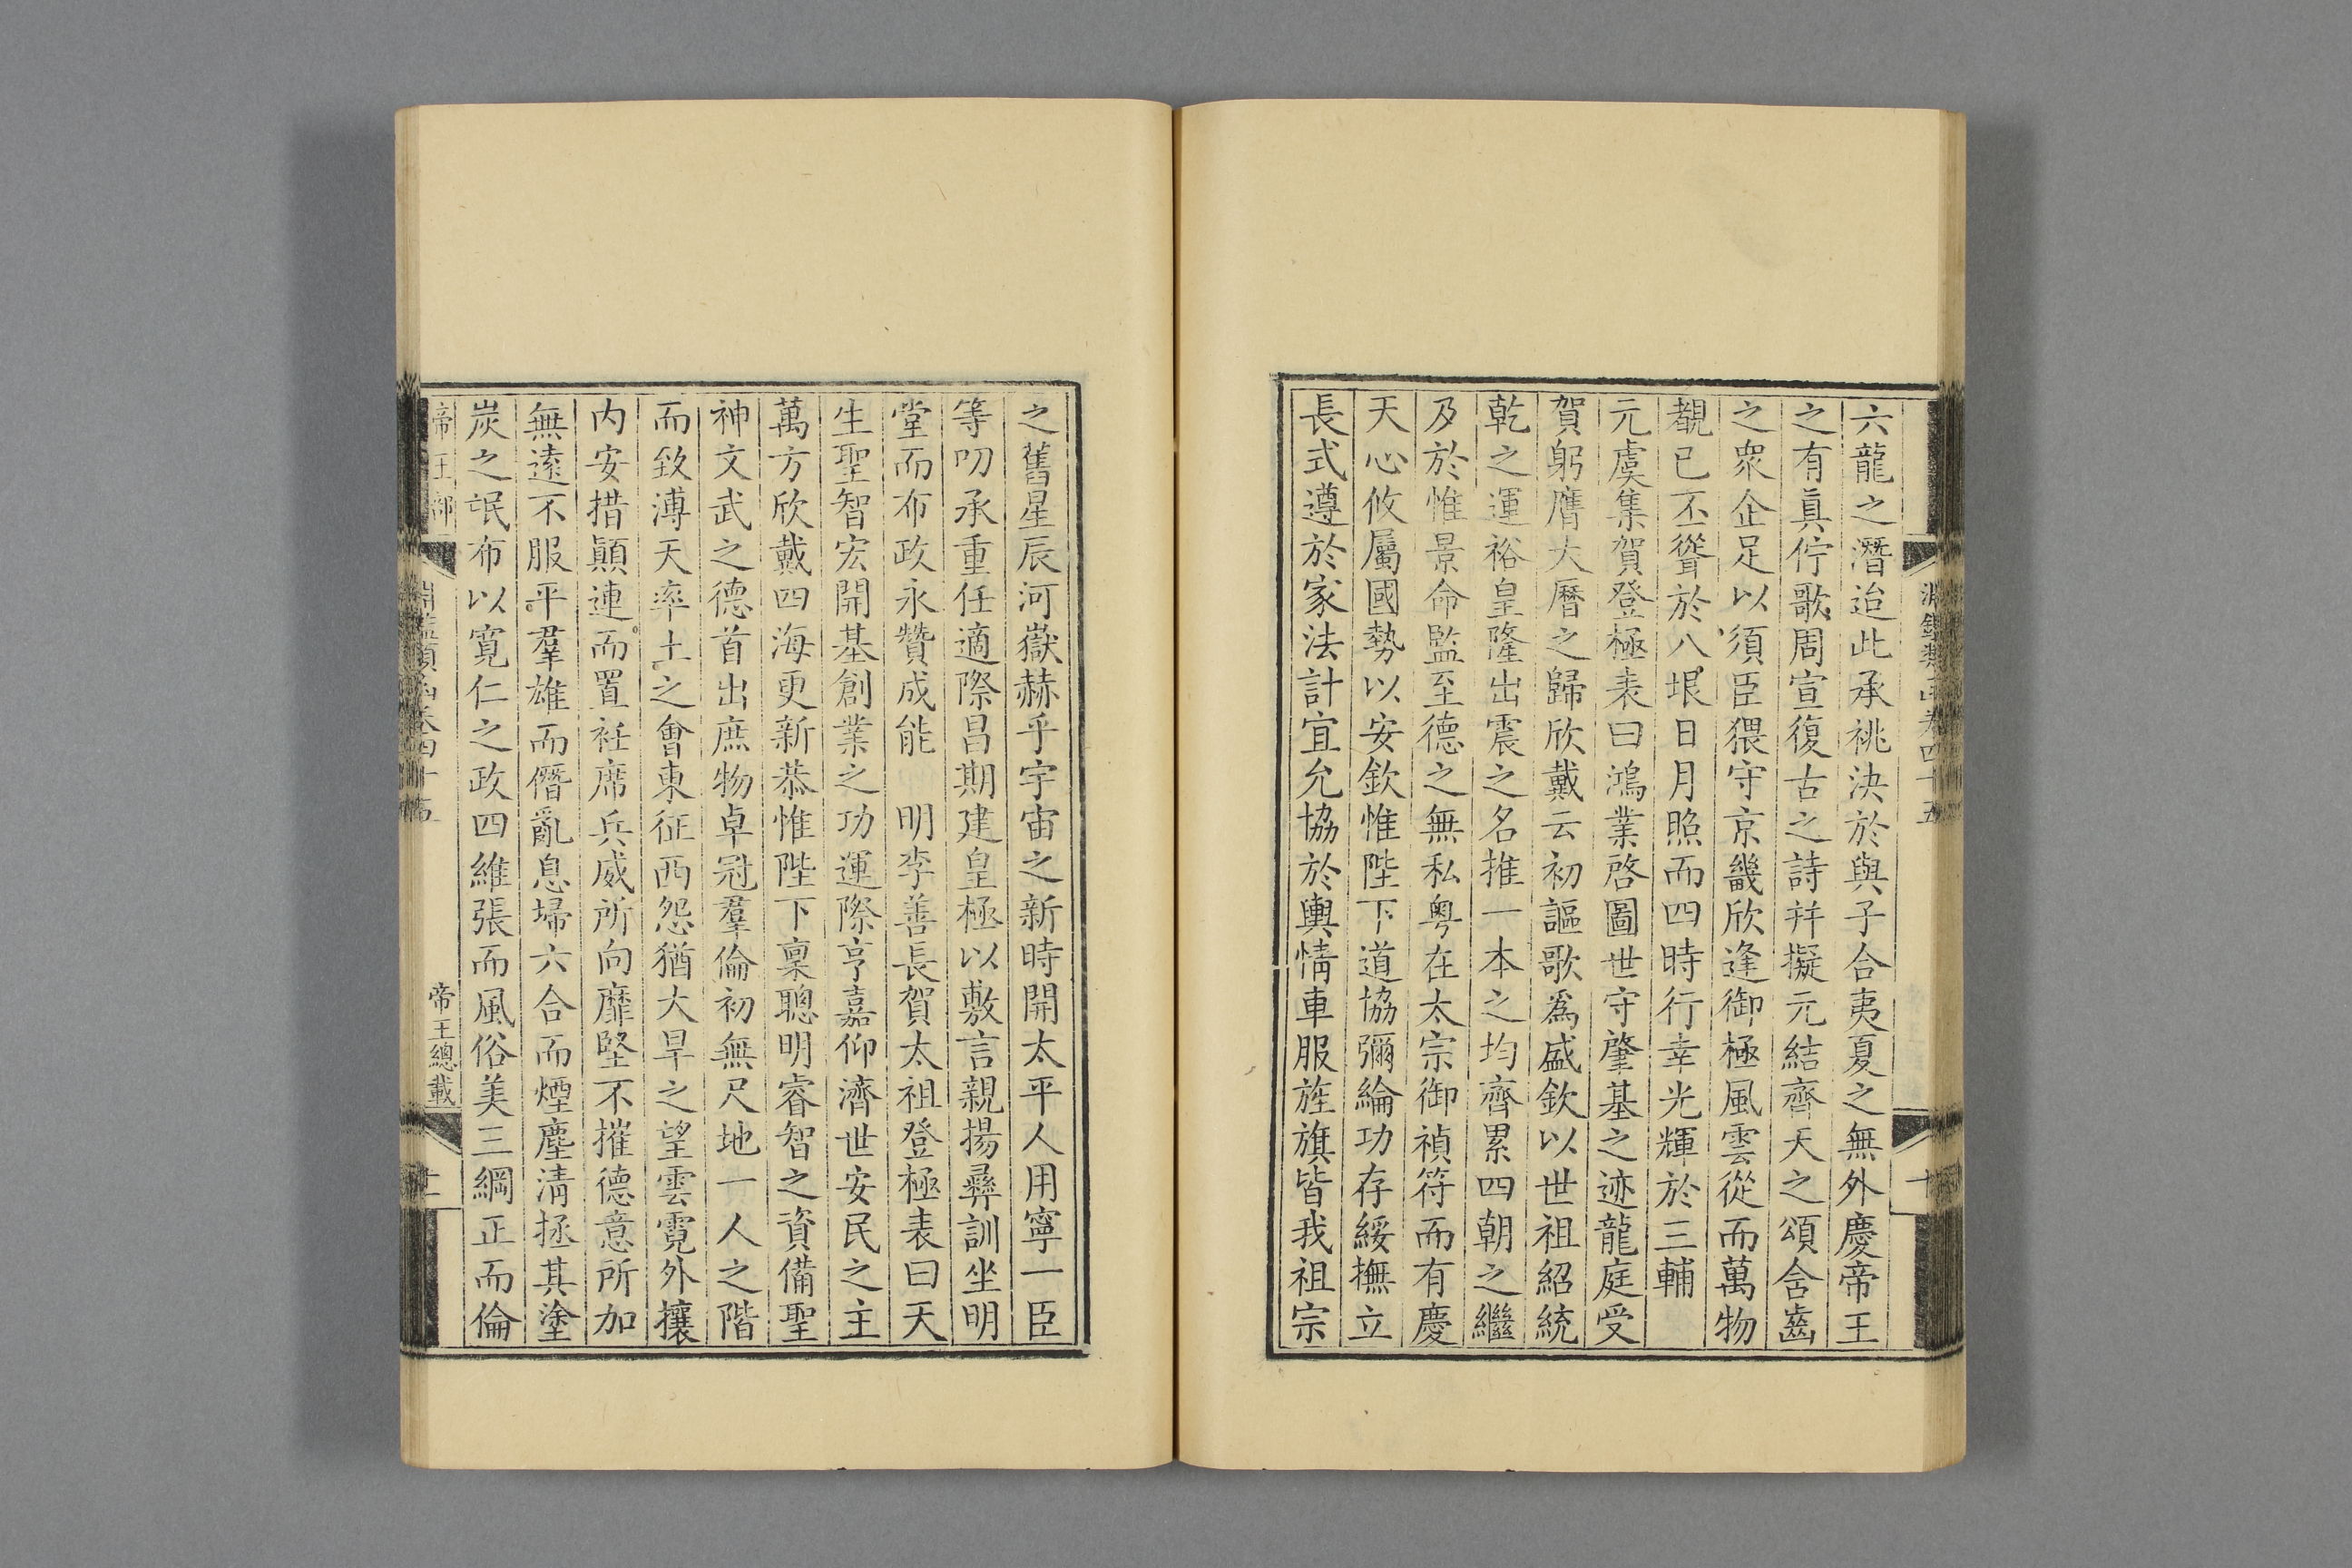 六龍之潛迨此承祧決於與子合夷夏之無外慶帝王
之有真佇歌周宣復古之詩并擬元結齊天之頌含齒
之衆企足以須臣猥守京畿欣逢御極風雲從而萬物
覩已丕聳於八垠日月照而四時行幸光輝於三輔
元虞集賀登極表曰鴻業啓圖世守肇基之迹龍庭受
賀躬膺大曆之歸欣戴云初謳歌爲盛欽以世祖紹統
乾之運裕皇隆出震之名推一本之均齊累四朝之繼
及於惟景命監至德之無私粤在太宗御禎符而有慶
天心攸屬國勢以安欽惟陛下道協彌綸功存綏撫立
長式遵於家法計宜允協於輿情車服旌旗皆我祖宗
之舊星辰河嶽赫乎宇宙之新時開太平人用寧一臣
等叨承重任適際昌期建皇極以敷言親揚彝訓坐明
堂而布政永贊成能 明李善長賀太祖登極表曰天
生聖智宏開基創業之功運際亨嘉仰濟世安民之主
萬方欣戴四海更新恭惟陛下稟聰明睿智之資備聖
神文武之德首出庶物卓冠羣倫初無尺地一人之階
而致溥天率土之會東征西怨猶大旱之望雲霓外攘
内安措顛連而置衽席兵威所向靡堅不摧德意所加
無遠不服平羣雄而僭亂息埽六合而煙塵清拯其塗
炭之氓布以寬仁之政四維張而風俗美三綱正而倫
帝王部
帝王總載